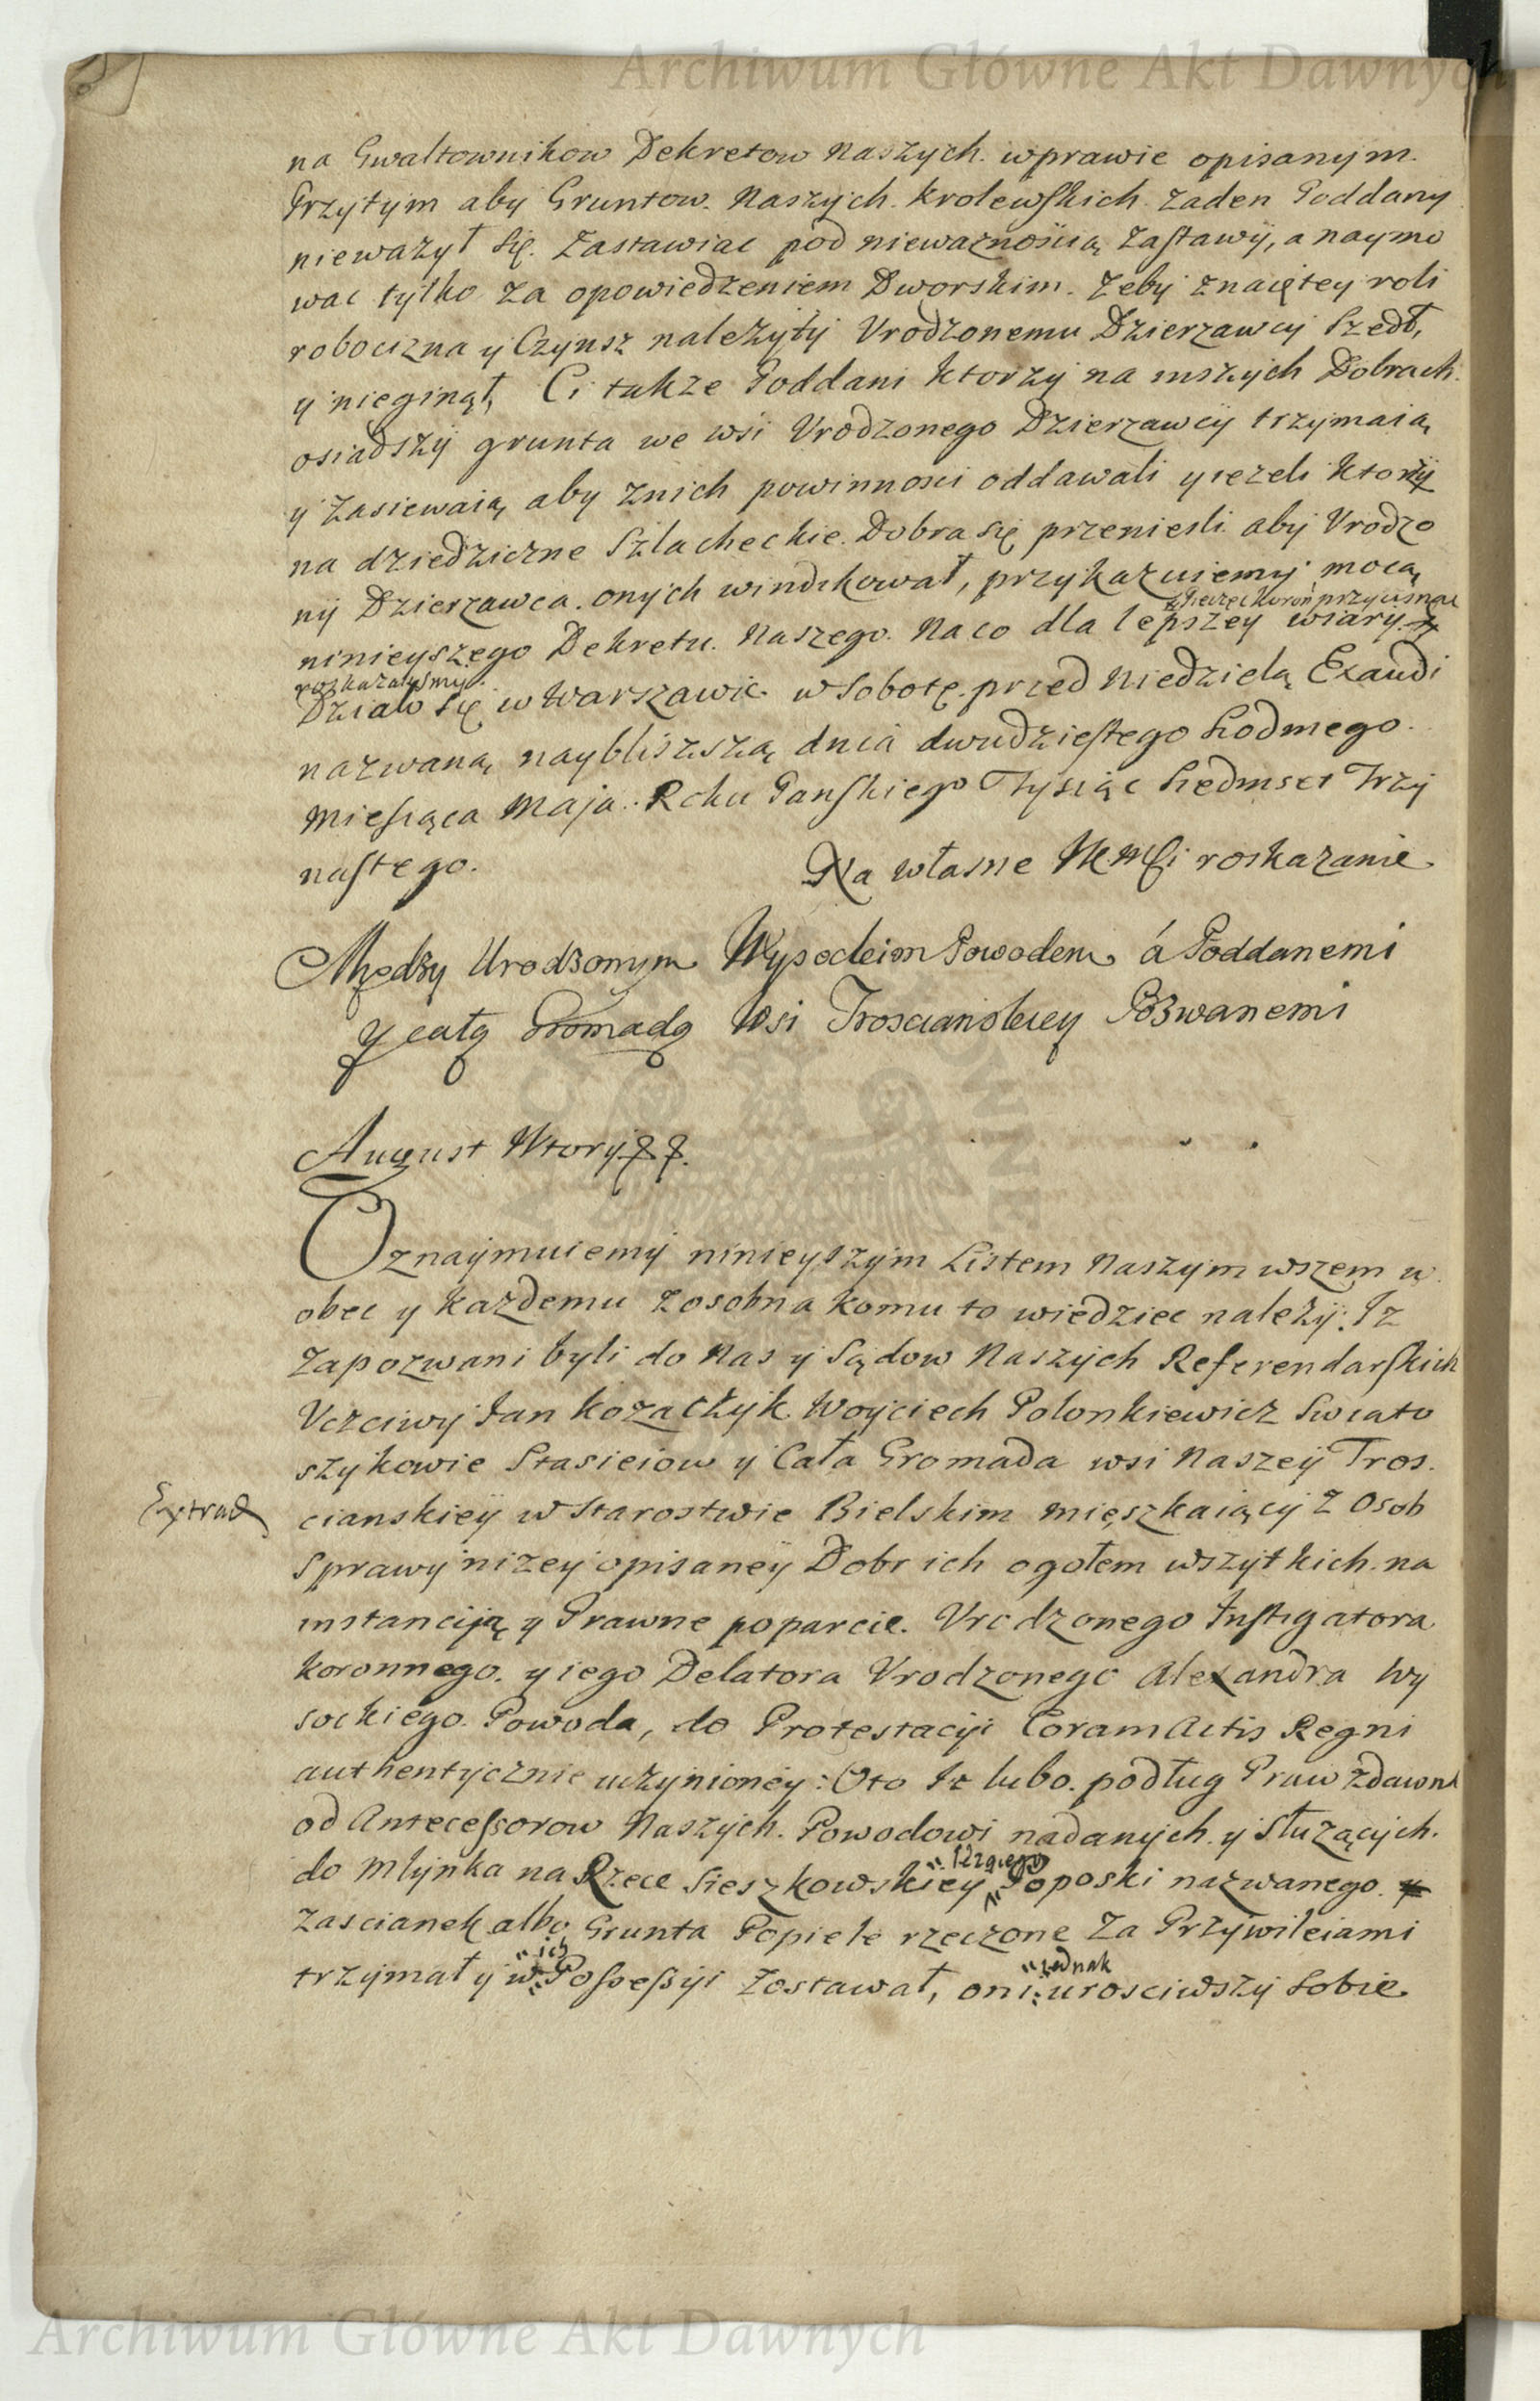 Archiwum Główne Akt Dawnych
na Gwaltownikow Dekretow Naszych. wprawie opisanym.
Przytym aby Gruntow. Naszych. Krolewskich zaden Poddany
nieważył się. Zastawiac pod niewaznoscią Zastawy, a naymo
wac tylko za opowiedzeniem Dworskim. Zeby znaiętey roli
robocizna y Czynsz należyty Vrodzonemu Dzierzawcy Szedł,
y nieginął, Ci takze Poddani Ktorzy na inszych Dobrach.
osiadszy grunta we wsi Vrodzonego Dzierzawcy trzymaią
y Zasiewaią, aby znich powinnosci oddawali y iezeli Ktorzy
na dziedziczne Szlacheckie. Dobra się przeniesli aby Vrodzo
ny Dzierzawca. onych windikował, przykazuiemy mocą
ninieyszego Dekretu. Naszego. Na co dla lepszey wiary.
Pieczęc Koron przycisnąc
roskazalismy.
Działo się w Warszawie w Sobotę. przed Niedzielą Exaudi
nazwaną naybliszszą dnia dwudziestego Siodmego.
Miesiąca Maja. Roku Panskiego Tysiąc Siedmset Trzy
nastego.
Na własne roskazanie
Między Urodzonym Wysockim Powodem á Poddanemi
y całą Gromadą Wsi Troscianskiey Pozwanemi
August Wtory
Oznaymuiemy ninieyszym Listem Naszym wszem w
obec y Kazdemu zosobna komu to wiedziec nalezy. Iz
Zapozwani byli do Nas y Sądow Naszych Referendarskich
Vczciwy Jan Kozaczyk Woyciech Polonkiewicz Swiato
szykowie Stasieiow y Cała Gromada wsi Naszey Tros.
Extrad
cianskiey w Starostwie Bielskim mięszkaiący z Osob
Sprawy nizey opisaney Dobr ich ogołem wszytkich. na
instancyią y Prawne poparcie. Vrodzonego Instigatora
koronnego. y iego Delatora Vrodzonego Alexandra Wy
sockiego. Powoda, do Protestacyi Coram Actis Regni
authentycznie uczynioney: Oto Iz lubo. podług Praw zdawna
od Antecessorow Naszych. Powodowi nadanych y Służących.
do Młynka na Rzece Sieszkowskiey Poposki nazwanego.
Zascianek albo Grunta Popiele rzeczone Za Przywileiami
ich
iednak
trzymał y w Possessyi Zostawał, oni urosciwszy sobie
Archiwum Główne Akt Dawnych